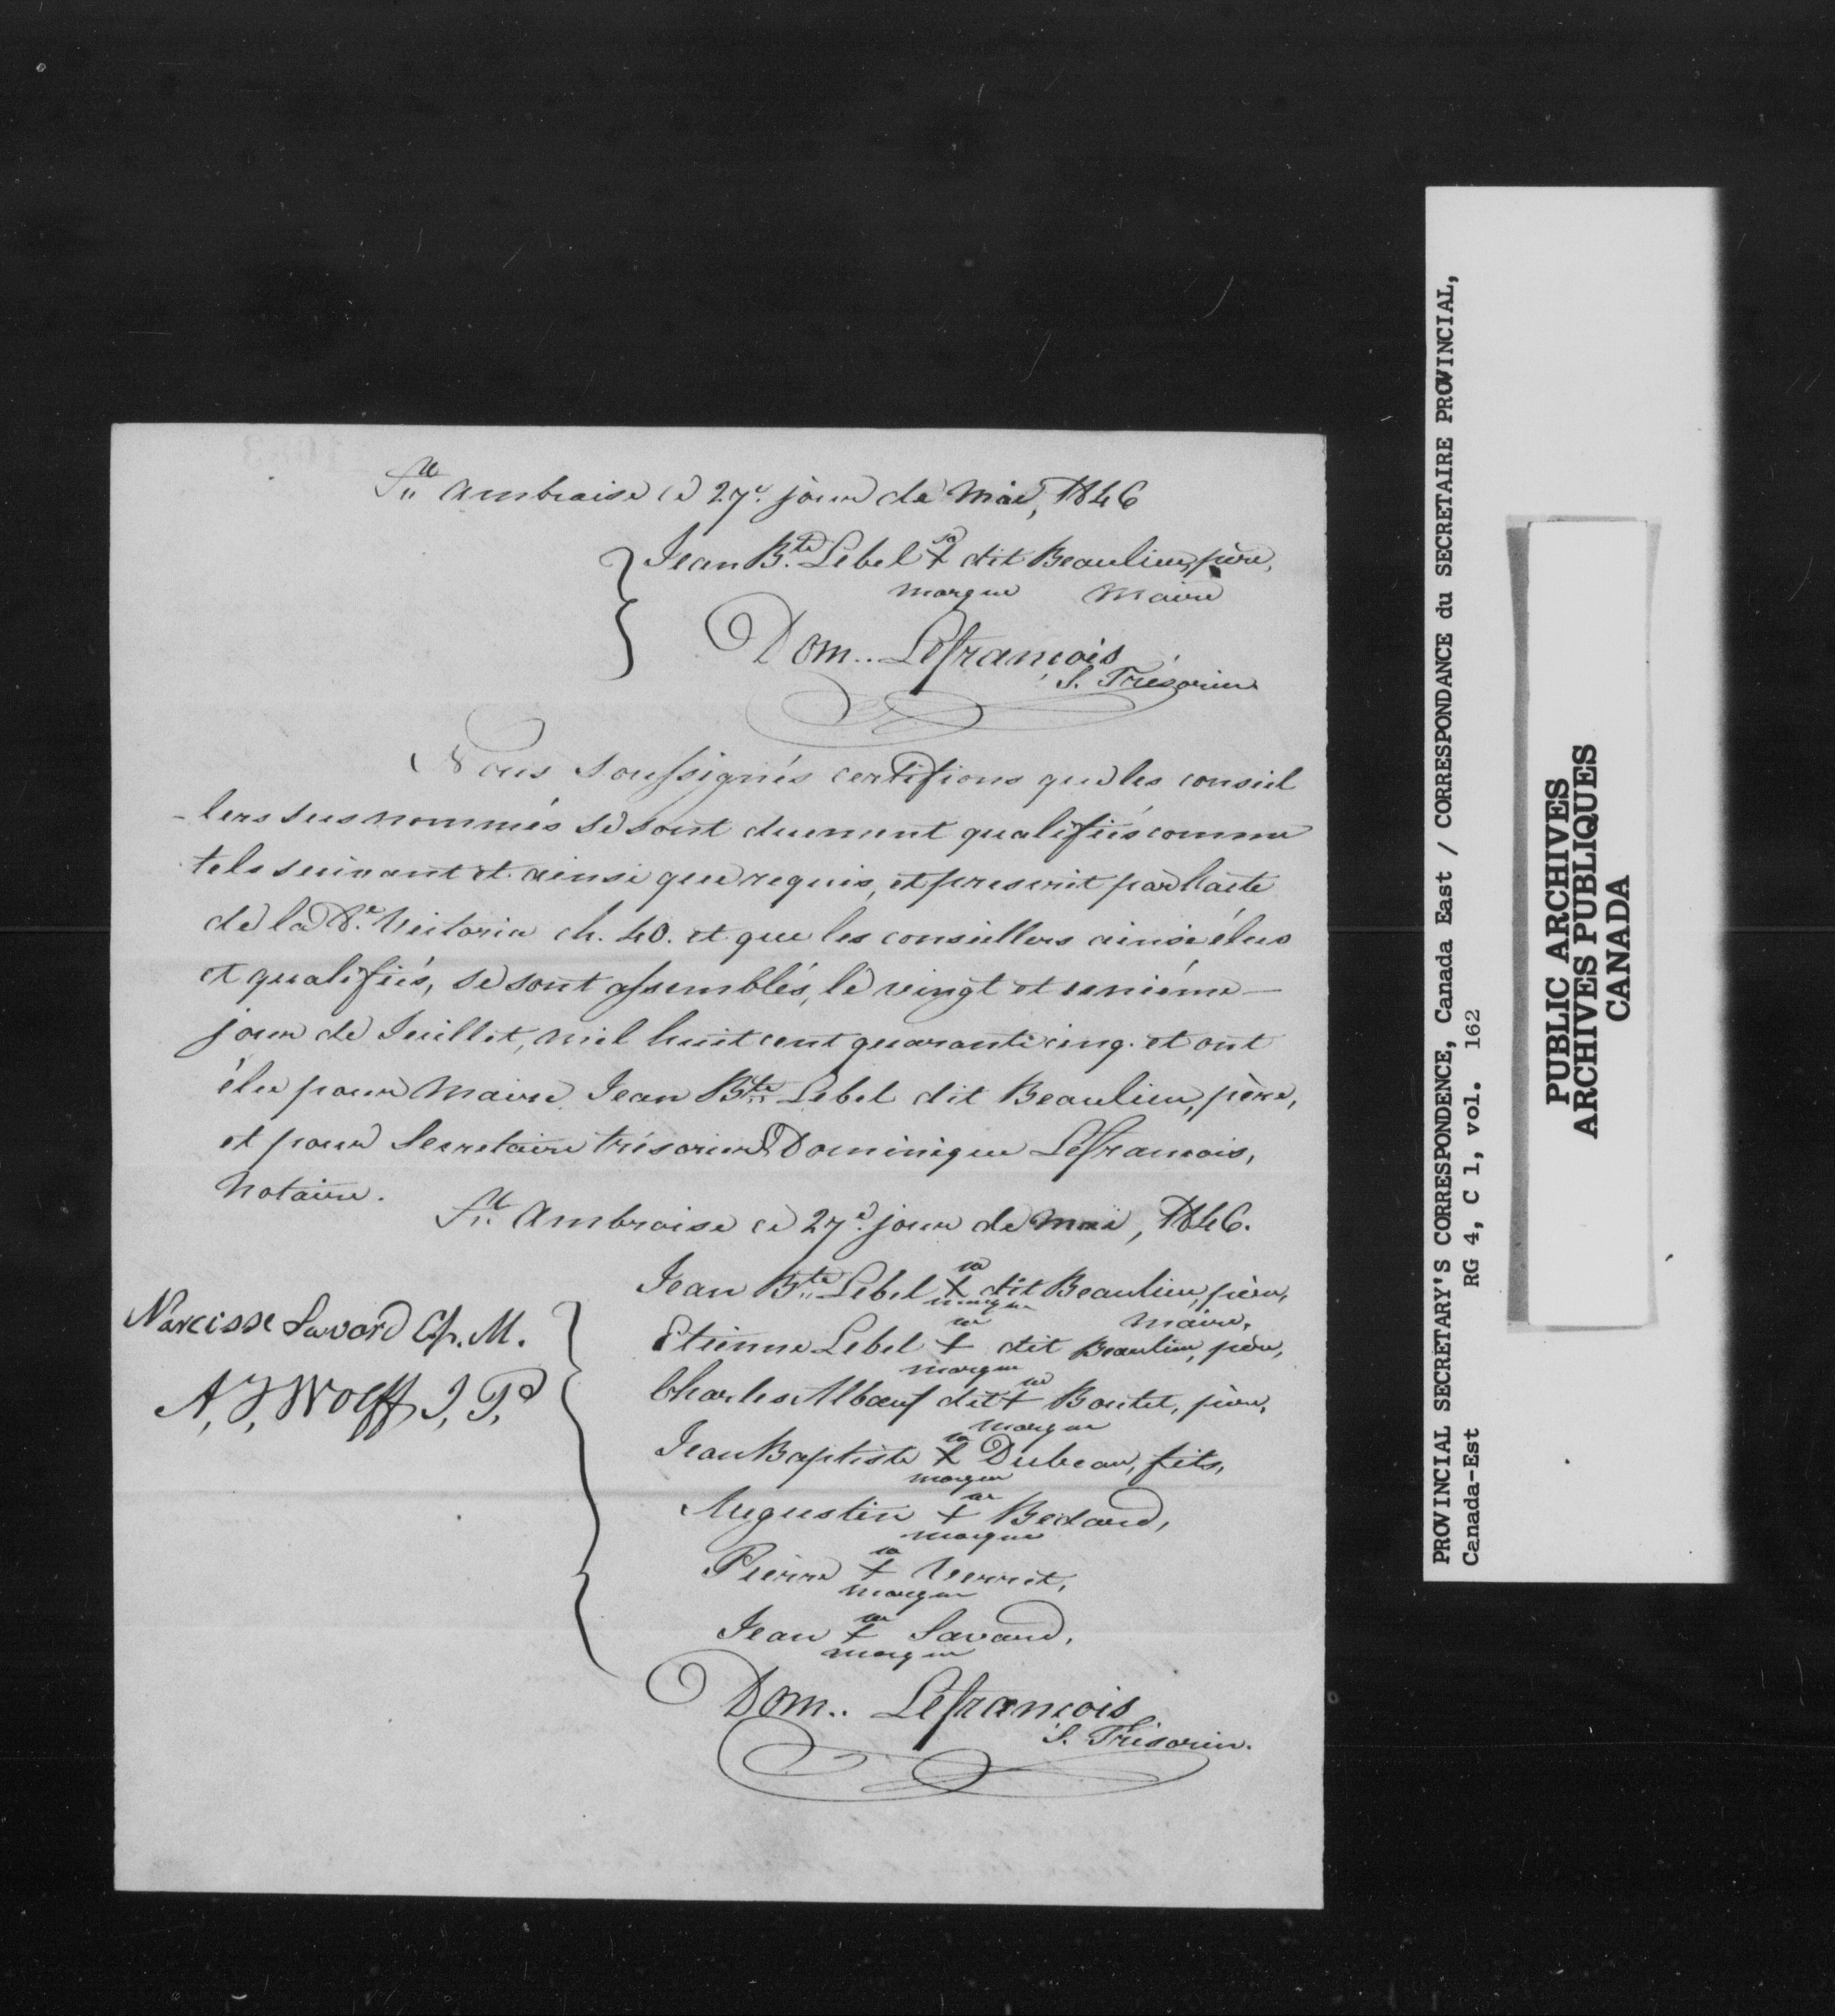 St Ambroise ce 27e. jour de Mai, 1846
Jean Bte. Lebel sa + dit Beaulieu, père,
marque Maire
Dom.. Lefrancois
S. Trésorier
Nous soussignés certifions que les conseil
-lers susnommés se sont duement qualifiés comme
tels suivant et ainsi que requis, et prescrit par l'acte
de la 8e. Victoria ch. 40. et que les conseillers ainsi élus
et qualifiés, se sont assemblés, le vingt et unième
jour de Juillet, mil huit cent quarante cinq. et ont
élu pour Maire Jean Bte. Lebel dit Beaulieu, père,
et pour Secretaire trésorier Dominique Lefrancois,
Notaire.
St. Ambroise ce 27e. jour de Mai, 1846.
Jean Bte. Lebel sa + dit Beaulieu, père,
marque maire,
Etienne Lebel sa + dit Beaulieu, père,
marque
Charles Albœuf dit sa + Boutet, père,
marque
Jean Baptiste sa + Dubeau, fils,
marque
Augustin sa + Bedard,
marque
Pierre sa + Verret,
marque
Jean sa + Savard,
marque
Narcisse Savard Cp. M.
A, J, Wolff J, P,
Dom.. Lefrancois
S. Trésorier.
PROVINCIAL SECRETARY'S CORRESPONDENCE, Canada East / CORRESPONDANCE du SECRETAIRE PROVINCIAL,
Canada-Est RG 4, C 1, vol. 162
PUBLIC ARCHIVES
ARCHIVES PUBLIQUES
CANADA